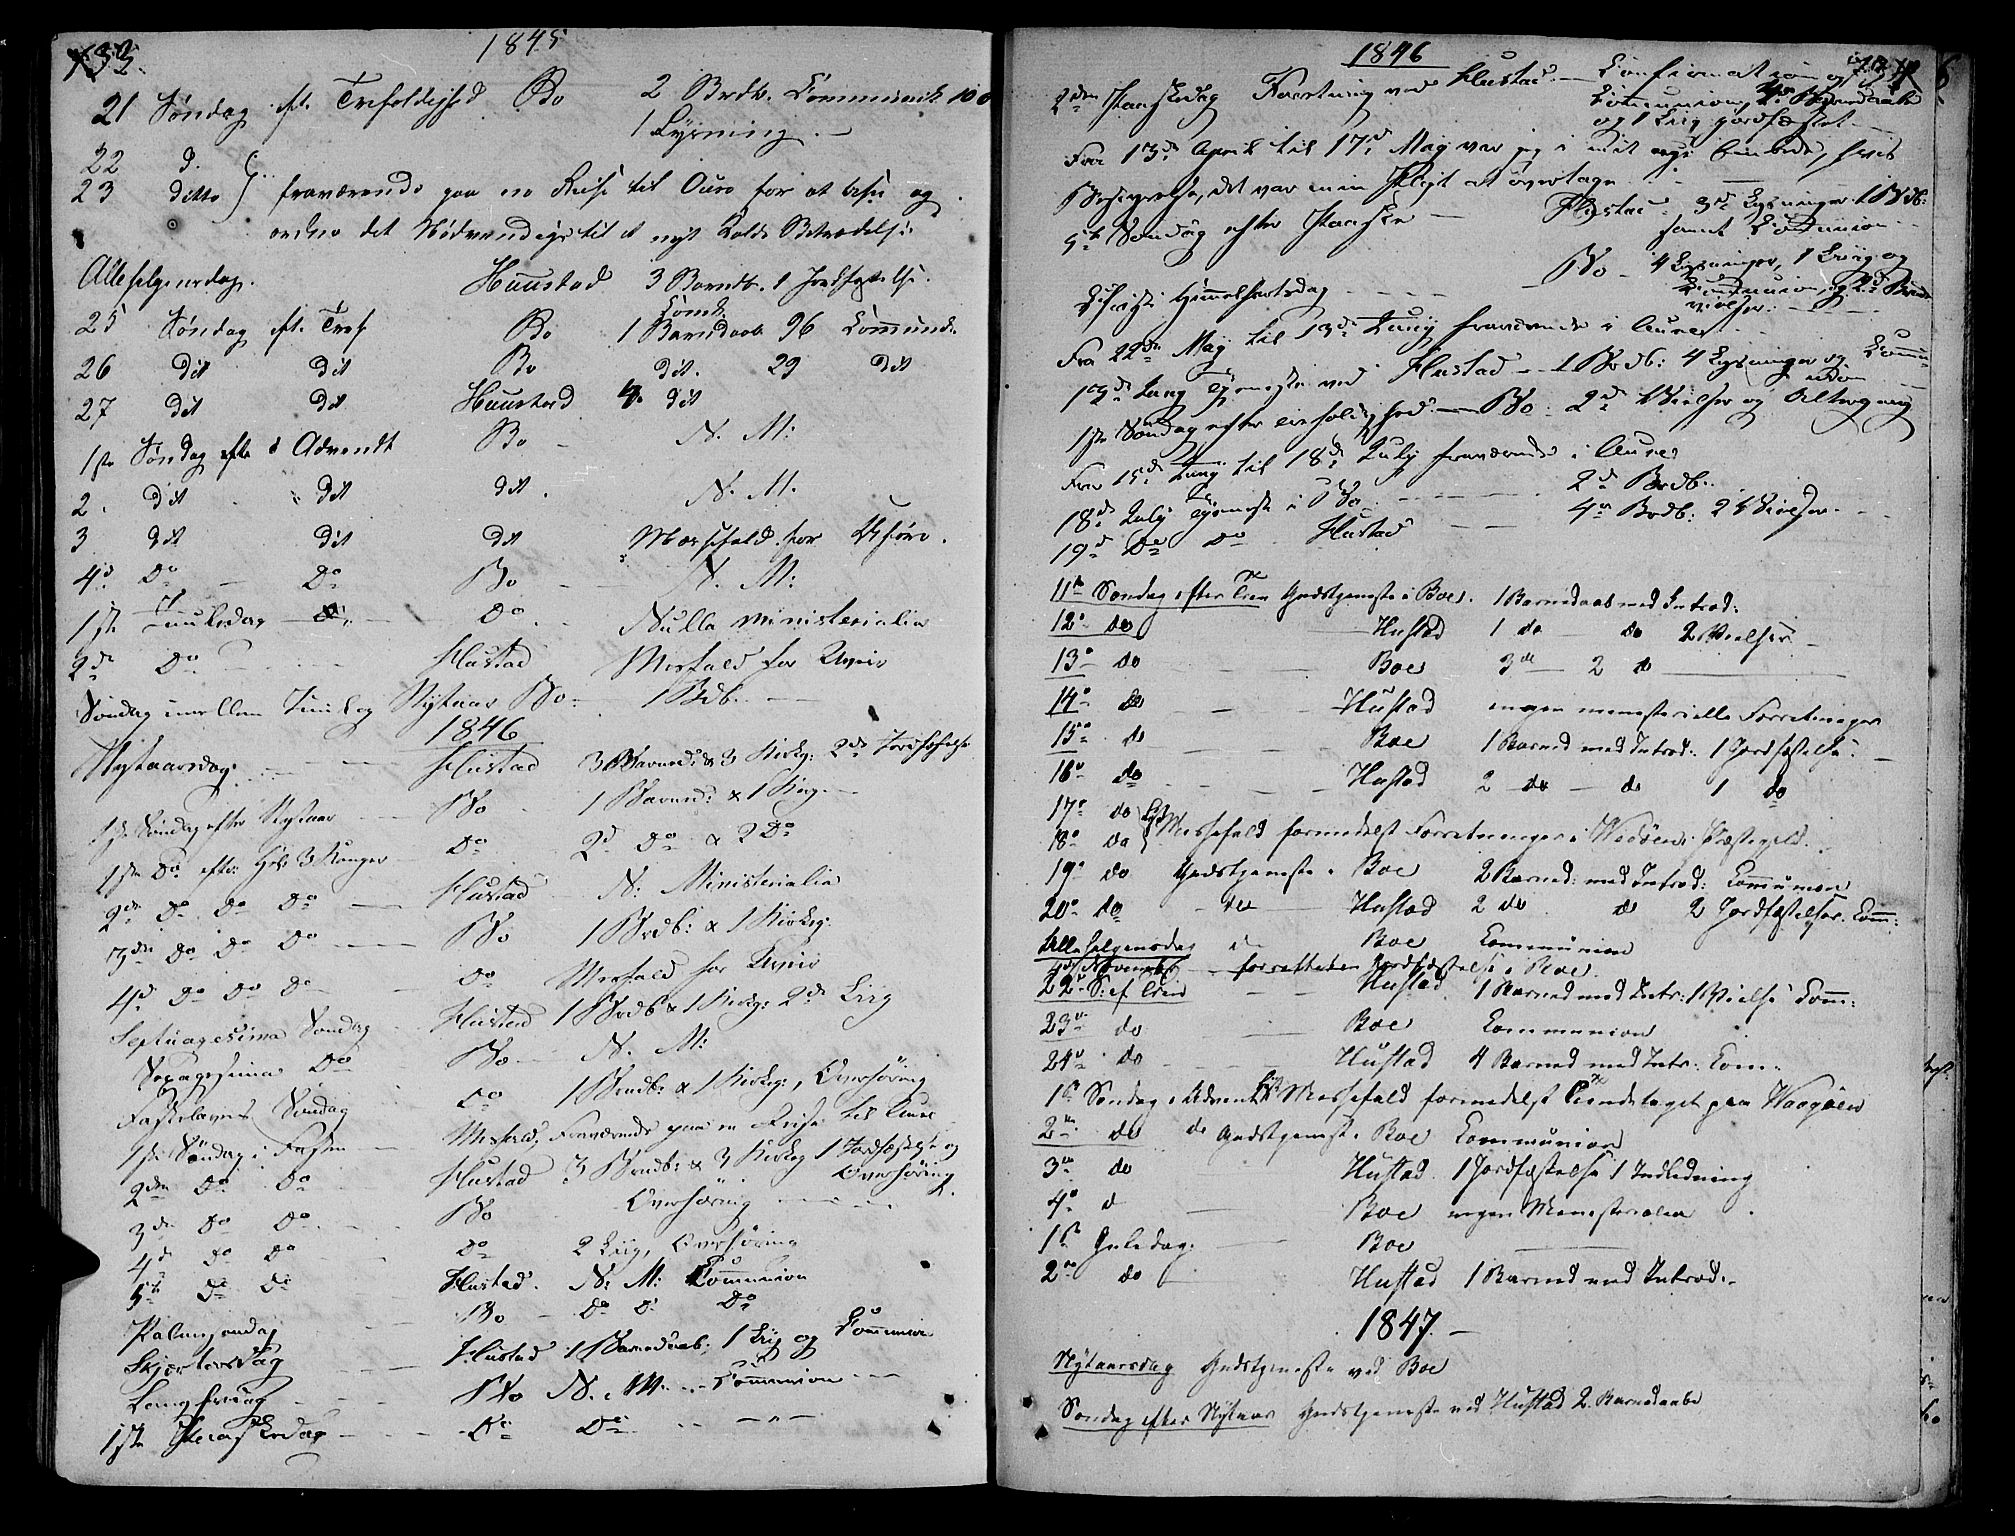 133.
1845
21 Søndag eft. Trefoldighed Bo 2 Brdb. Communik. 100
1 Lysning. —
22 d.
23 ditto } fraværende paa en Reise til Aure for at bese og
ordne det Nødvendige til et nyt Kalds Betrædelse.
Allehelgensdag. Huustad 3 Barndb. 1 Jordfæstelse.
25 Søndag eft. Tref Bo 1 Barndaab 96 Communik.
26 dit dit Bo dit. 29 dit
27 dit dit Huustad 4 dit
1ste Søndag efter Advendt Bo - N. M:
2. dit dit dit. N. M.
3 dit dit dit Messefald for Uføre.
4d. Do — Do Bo — N. M:
1ste Juuledag Do. Nulla ministerialia
2de Do Hustad Mesfald for Uveir
Søndag imellem Juul og Nytaar Bo. 1 Brdb.
1846
Nytaarsdag. Hustad 3 Barned: & 3 Kirkg: 2de Jordfæstelse
1ste Søndag efter Nytaar Bo 1 Barned: & 1 Kirkg.
1ste Do efter Hel. 3 Konger Do 2d Do & 2 Do
2de Do Do Do Hustad N. Ministerialia
3die Do Do Do Bo 1 Brdb: & 1 Kirkeg:
4d Do Do Do Do Mesfald for Uveir
Septuagesima Søndag Hustad 1 Brdb & 1 Kirkg: 2de Liig
Sexagesima Do Bo N. M:
Fastelavns Søndag Do 1 Brndb: & 1 Kirkeg:, Overhøring
1ste Søndag i Fasten Mesfald, Fraværende paa en Reise til Aure
2den Do Do Hustad 3 Brndb: & 3 Kirkeg 1 Jordfæstelse og
Overhøring.
3de Do Do Bo Overhøring
4d Do Do Do 2 Liig, Overhøring
5t Do Do Hustad. N. M: Communion
Palmesøndag Bo Do D. Do
Skjærtorsdag Hustad 1 Barnedaab, 1 Liig og Communion
Langfredag Bo N. M. Communion
1ste Paaskedag Do Do
1846
2den Paaskedag Forretning ved Hustad. — Confirmation og
Communion, 2de Barnedaabe
og 1 Liig jordfæstet
Fra 13de April til 17d. May var jeg i mit nye Embede, hvis
Besørgelse, det var min Pligt at overtage
5t. Søndag efter Paaske — Hustad 3de Lysninger 1 Brdb:
samt Communion
Christi Himmelfartsdag Bo — 4 Lysninger, 1 Liig og
Communion, og 2d Brude
vielser.
Fra 22de May til 13de Juny fraværende i Aure
13de Juny Tjeneste ved Hustad — 1 Brdb: 4 Lysninger og Commu-
nion
1ste Søndag efter Trefoldighed. — Bo: 2de Vielser og Altergang
Fra 15de Juny til 18d. July fraværende i Aure
18de July Tjeneste i Bo. 2de Brdb.
19d Do Do Hustad 4re Brdb: 2 Vielser.
11te Søndag efter Trin Gudstjeneste i Boe. 1 Barnedaab med Introd:
12te do Hustad 1 do do 2 Vielser
13de do Boe 3de 2 do
14de do Hustad ingen ministerielle Forretninger
15de do Boe 1 Barned med Introd. 1 Jordfæstelse
16de do Hustad 2 do do 1 do
17de do
18de do } Messefald formedelst Forretninger i Vedøens Præstegield.
19de do Gudstjeneste i Boe 2 Barned: med Introd: Communion
20de do do Hustad 2 do do 2 Jordfæstelser. Comm:
Allehelgensdag do Boe Communion
4de November forrettedes Jordfæstelse i Boe.
22de S: ef Trin Hustad 1 Barned med Intr: 1 Vielse Comm:
23de do Boe Communion
24de do Hustad 4 Barned med Intr: Com:
1ste Søndag i Advent Messefald formedelst paa Vaagøen
2den do do Gudstjeneste i Boe Communion
3die do Hustad 1 Jordfæstelse 1 Indledning
4de d Boe ingen Ministerialia
1ste Juledag. Boe
2den do Hustad 1 Barned med Introd.
1847. —
Nytaarsdag Gudstjeneste ved Boe
Søndag efter Nytaar Gudstjeneste ved Hustad 2 Barnedaabe